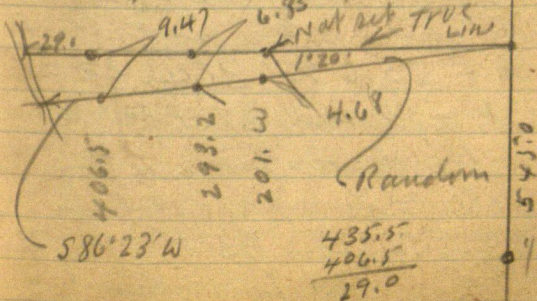 29.
9.47
6.83
Not set
True
Line
1°20'
4.68
406.5
293.2
201.W
Random
543.0
S86°23'W
435.5
406.5
29.0